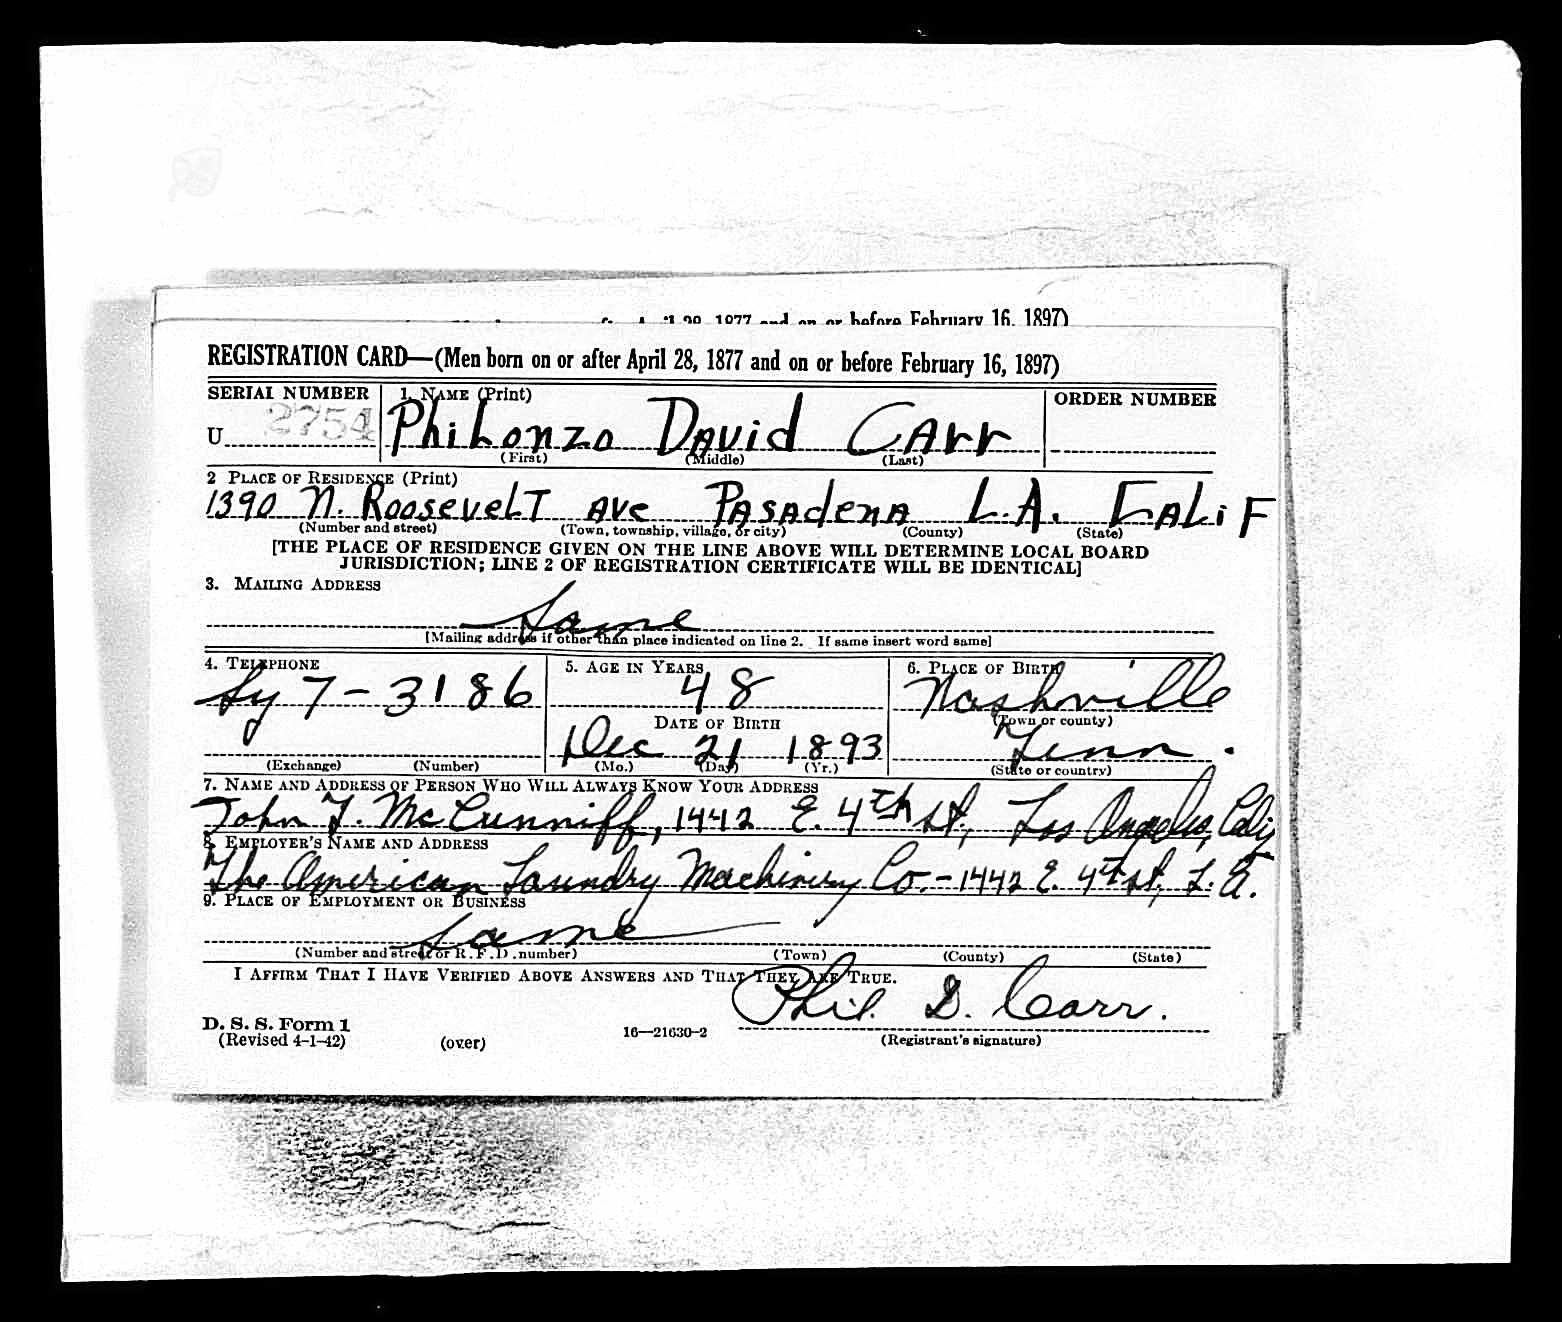 28, 1877 and on or before February 16, 1897)
REGISTRATION CARD—(Men born on or after April 28, 1877 and on or before February 16, 1897)
SERIAL NUMBER 1. NAME (Print) ORDER NUMBER
U 2754 PhiLonzo DAvid CArr
(First) (Middle) (Last)
2 PLACE OF RESIDENCE (Print)
1390 N. RooseveLT Ave PASAdenA L.A. CALiF
(Number and street) (Town, township, village, or city) (County) (State)
[THE PLACE OF RESIDENCE GIVEN ON THE LINE ABOVE WILL DETERMINE LOCAL BOARD
JURISDICTION; LINE 2 OF REGISTRATION CERTIFICATE WILL BE IDENTICAL]
3. MAILING ADDRESS
Same
[Mailing address if other than place indicated on line 2. If same insert word same]
4. TELEPHONE 5. AGE IN YEARS 6. PLACE OF BIRTH
Sy 7-3186 48 Nashville
DATE OF BIRTH (Town or county)
Dec 21 1893 Tenn.
(Exchange) (Number) (Mo.) (Day) (Yr.) (State or country)
7. NAME AND ADDRESS OF PERSON WHO WILL ALWAYS KNOW YOUR ADDRESS
John F. McCunniff, 1442 E. 4th St., Los Angeles, Calif
8. EMPLOYER'S NAME AND ADDRESS
The American Laundry Machinery Co.-1442 E. 4th St, L.A.
9. PLACE OF EMPLOYMENT OR BUSINESS
Same
(Number and street or R. F. D. number) (Town) (County) (State)
I AFFIRM THAT I HAVE VERIFIED ABOVE ANSWERS AND THAT THEY ARE TRUE.
Phil. D. Carr.
D. S. S. Form 1
(Revised 4-1-42) (over) 16—21630-2 (Registrant's signature)